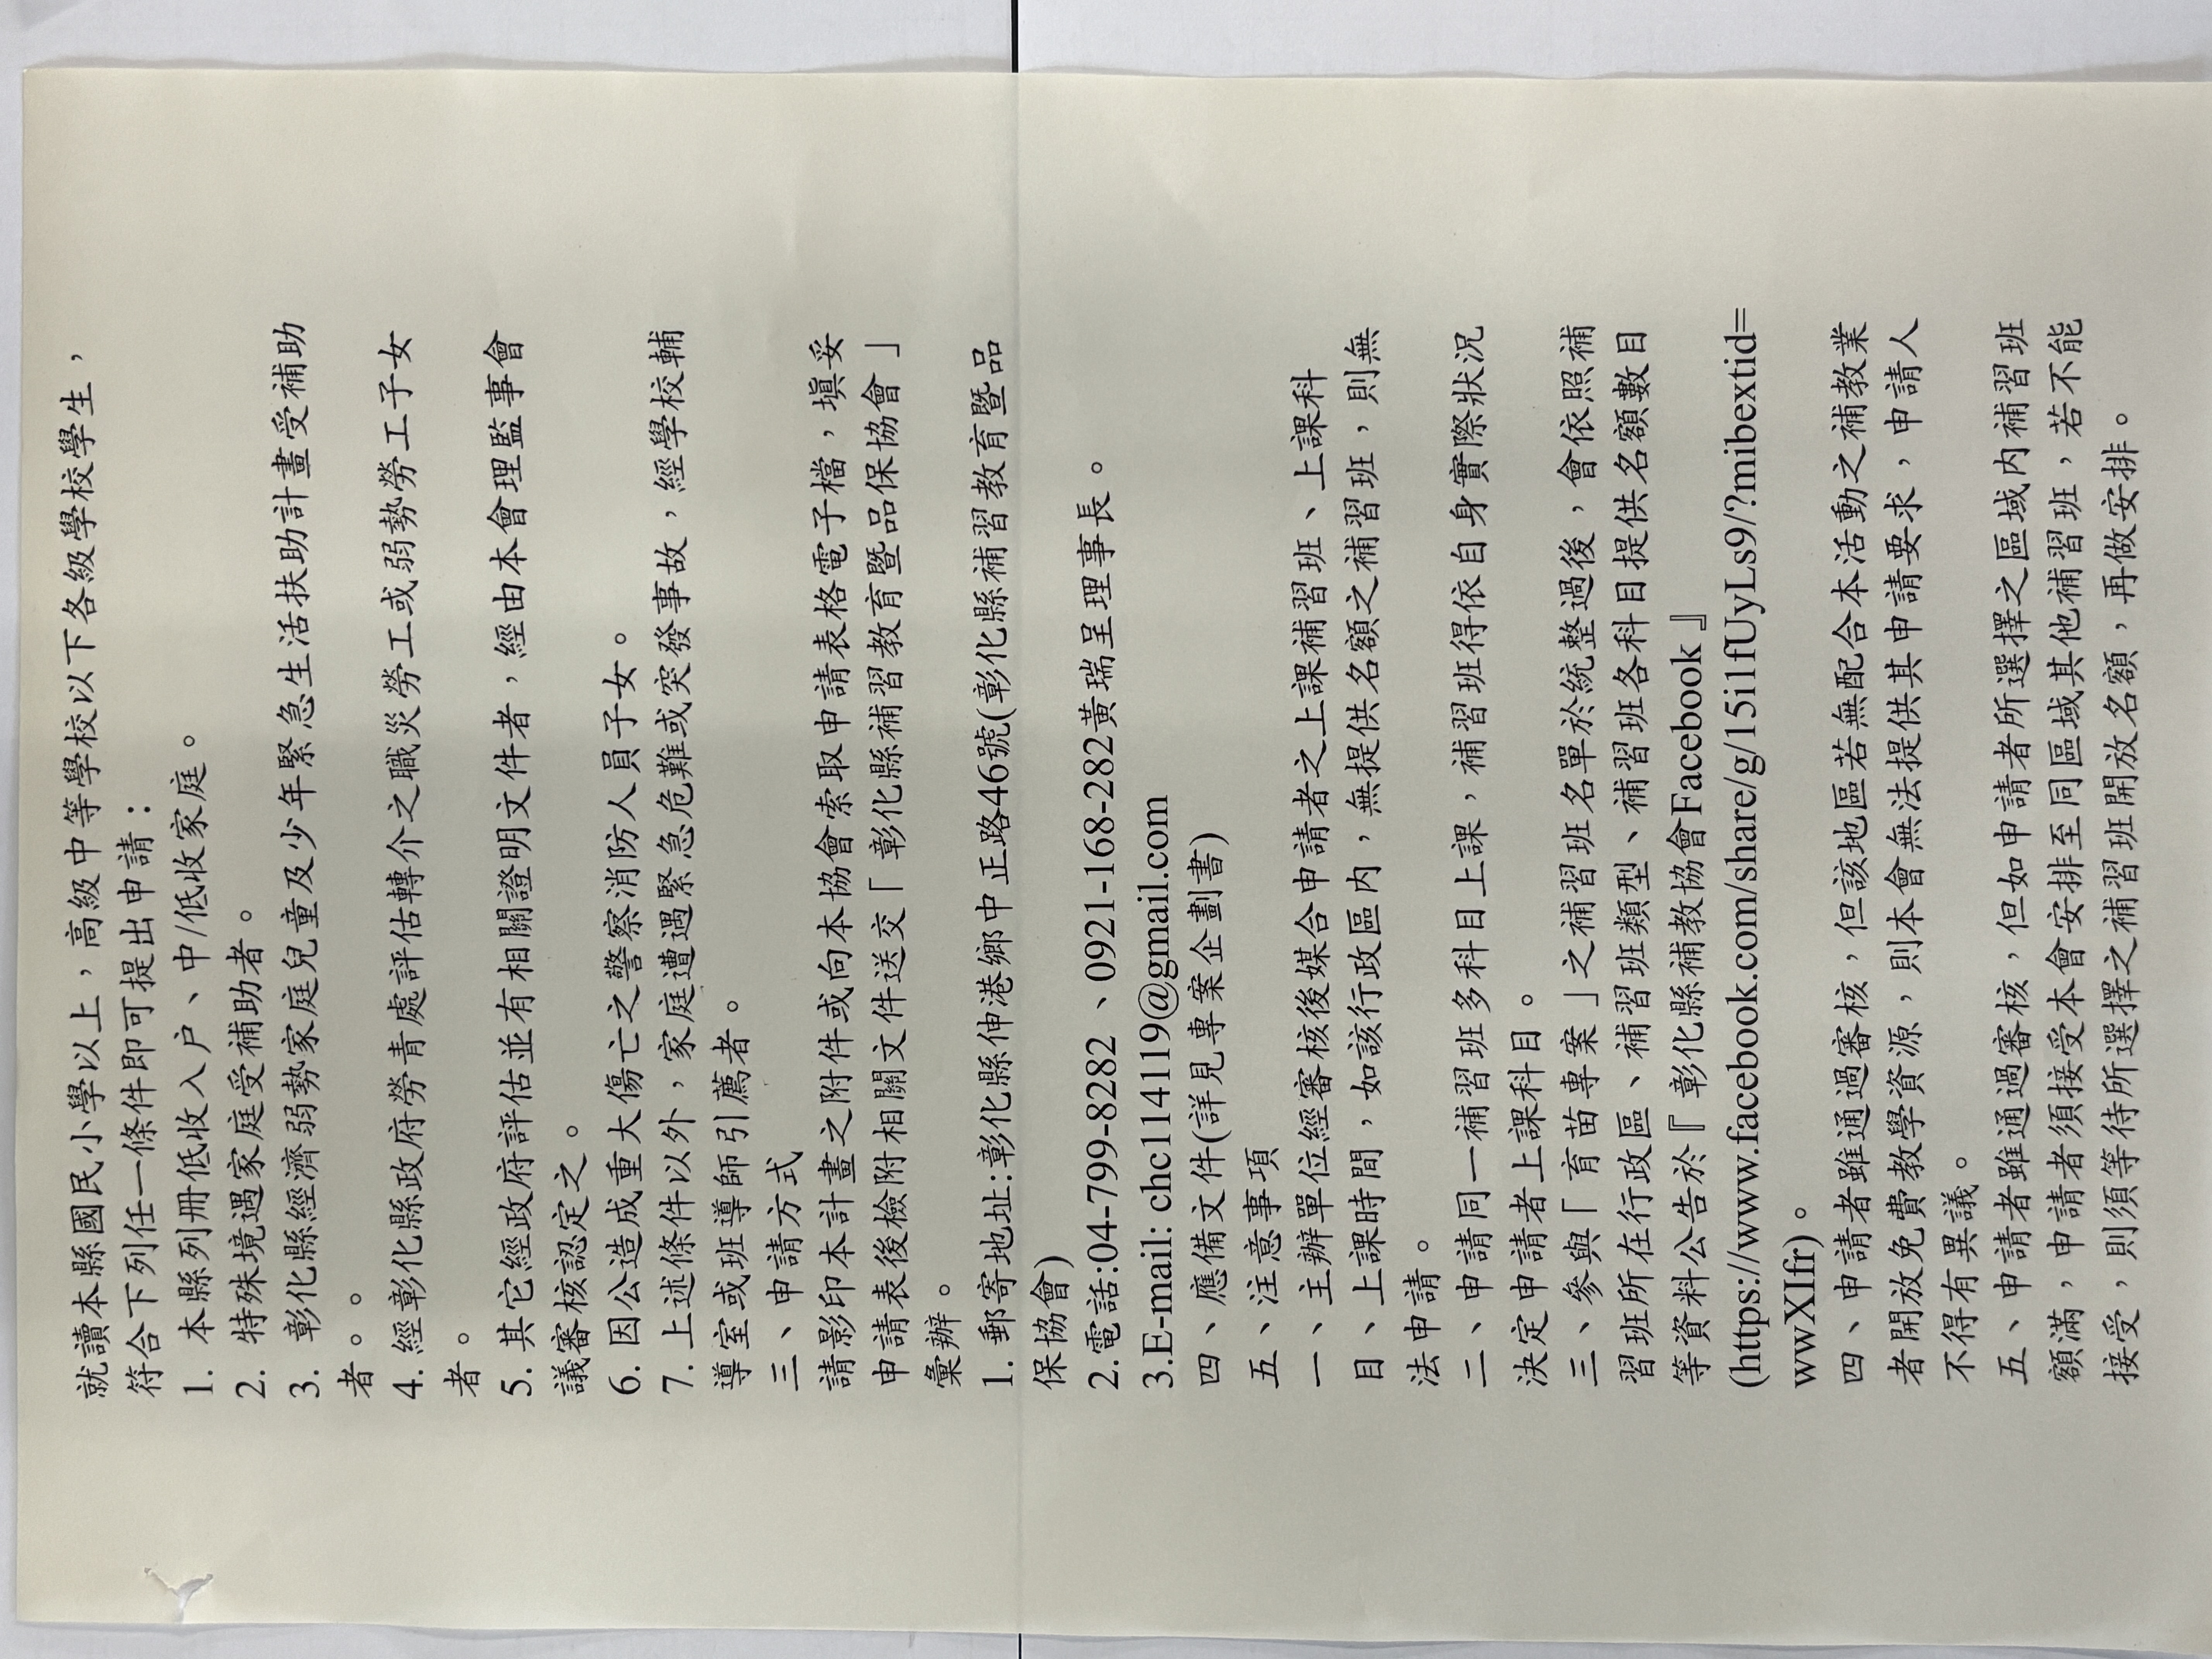 就讀本縣國民小學以上，高級中等學校以下各級學校學生，
符合下列任一條件即可提出申請：
1. 本縣列冊低收入戶、中/低收家庭。
2. 特殊境遇家庭受補助者。
3. 彰化縣經濟弱勢家庭兒童及少年緊急生活扶助計畫受補助
者。
4. 經彰化縣政府勞青處評估轉介之職災勞工或弱勢勞工子女
者。
5. 其它經政府評估並有相關證明文件者，經由本會理監事會
議審核認定之。
6. 因公造成重大傷亡之警察消防人員子女。
7. 上述條件以外，家庭遭遇緊急危難或突發事故，經學校輔
導室或班導師引薦者。
三、申請方式
請影印本計畫之附件或向本協會索取申請表格電子檔，填妥
申請表後檢附相關文件送交「彰化縣補習教育暨品保協會」
彙辦。
1. 郵寄地址:彰化縣伸港鄉中正路46號(彰化縣補習教育暨品
保協會)
2.電話:04-799-8282、0921-168-282黃瑞呈理事長。
3.E-mail: chc114119@gmail.com
四、應備文件(詳見專案企劃書)
五、注意事項
一、主辦單位經審核後媒合申請者之上課補習班、上課科
目、上課時間，如該行政區內，無提供名額之補習班，則無
法申請。
二、申請同一補習班多科目上課，補習班得依自身實際狀況
決定申請者上課科目。
三、參與「育苗專案」之補習班名單於統整過後，會依照補
習班所在行政區、補習班類型、補習班各科目提供名額數目
等資料公告於『彰化縣補教協會Facebook』
(https://www.facebook.com/share/g/15i1fUyLs9/?mibextid=
wwXIfr)。
四、申請者雖通過審核，但該地區若無配合本活動之補教業
者開放免費教學資源，則本會無法提供其申請要求，申請人
不得有異議。
五、申請者雖通過審核，但如申請者所選擇之區域內補習班
額滿，申請者須接受本會安排至同區域其他補習班，若不能
接受，則須等待所選擇之補習班開放名額，再做安排。